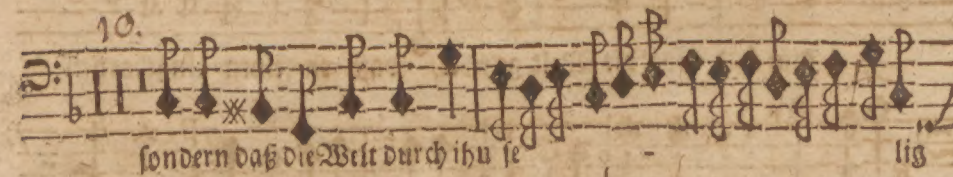 10.
sondern daß die Welt durch ihn se - lig